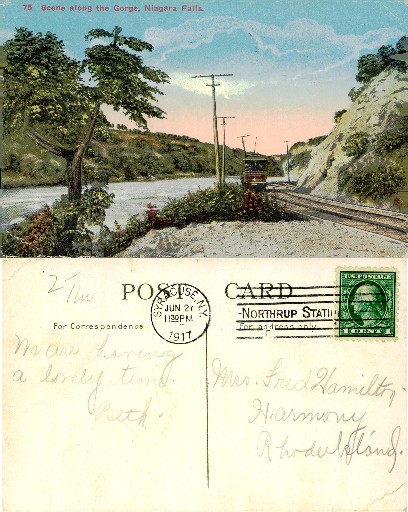 75 Scene along the Gorge, Niagara Falls.
POST CARD
For Correspondence
For address only
SYRACUSE, N.Y.
JUN 27
11 30 PM
1917
NORTHRUP STATI
U.S. POSTAGE
We are having
a lovely time.
Beth.
Mrs. Fred Hamilton
Harmony
Rhode Island.